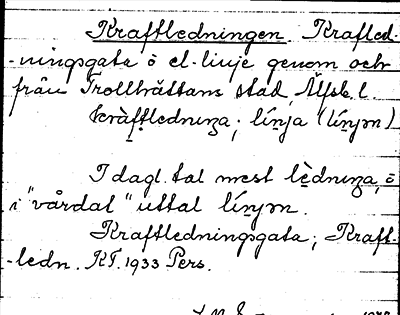 Kraftledningen. Krafled-
-ningsgata o el-linje genom och
från Trollhättans stad, Älfsb. l.
kràftledniŋa; línja (línjən)
I dagl. tal mest lèdniŋa, o
i "vårdat" uttal línjən.
Kraftledningsgata; Kraft-
-ledn. KF. 1933 Pers.